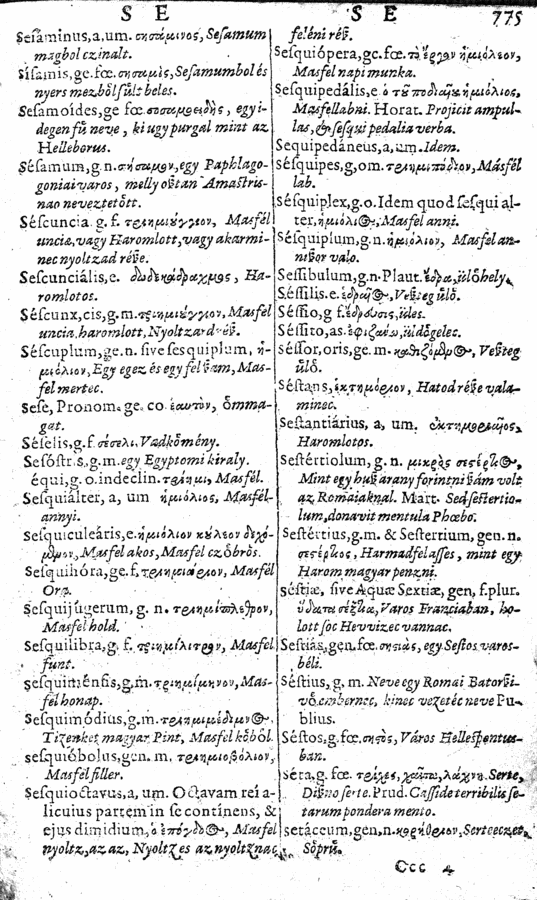 S E
Sesáminus, a, um. σησάμινος, Sesamum
magbol czinalt.
Sísamis, ge. fœ. σησαμὶς, Sesamumbol és
nyers mezbȍl sült beles.
Sesamoídes, ge fœ σησαμοειδὴς, egy i-
degen fű neve, ki ugy purgal mint az
Helleborus.
Sésamum, g. n. σήσαμον, egy Paphlago-
goniai varos, melly osztan Amastris-
nao neveztetȍtt.
Séscuncia. g. f. τριημιούγγιον, Masfél
unciæ, vagy Haromlott, vagy akarmi-
nec nyoltzad része.
Sescunciális, e. δωδεκάδραχμος, Ha-
romlotos.
Séscunx, cis, g. m. τριημιούγγιον, Masfel
uncia, haromlott, Nyoltzard résź.
Séscuplum, ge. n. sive sesquiplum, ἡ-
μιόλιον, Egy egez és egy fel szam, Mas-
fel mertec.
Sese, Pronom. ge. co ἑαυτὸν, ȍmma-
gat.
Séselis, g. f. σέσελι, Vadkȍmény.
Sesóstr. s, g. m. egy Egyptomi kiraly.
équi, g. o. indeclin. τρίημι, Masfél.
Sesquiálter, a, um ἡμιόλιος, Masfél-
annyi.
Sesquiculeáris, e. ἡμιόλιον κύλεον δεχό-
μενον, Masfel akos, Masfel czȍbrȍs.
Sesquihóra, ge. f. τριημιώριον, Masfél
Ora.
Sesquijúgerum, g. n. τριημίπλεθρον,
Masfel hold.
Sesquilibra, g. f. τριημίλιτρον, Masfel
funt.
Sesquiménsis, g. m. τριημίμηνον, Mas-
fél honap.
Sesquimódius, g. m. τριημιμέδιμνος,
Tizenket magyar Pint, Masfel kȍbȍl.
sesquióbolus, gen. m, τριημιοβόλιον,
Masfel filler.
Sesquioctavus, a, um. Octavam rei a-
licuius partem in se continens, &
ejus dimidium, ὁ ἐπόγδοος, Masfel
nyoltz, az az, Nyoltz es az nyoltznac
S E
775
feléni rész.
Sesquiópera, ge. fœ. τὸ ἔργον ἡμιόλεον,
Masfel napi munka.
Sesquipedális, e. ὁ τοῦ ποδιαῖου ἡμιόλιος,
Masfellabni. Horat. Projicit ampul-
las, & sesquipedalia verba.
Sequipedáneus, a, um. Idem.
Sésquipes, g, om. τριημιπόδιον, Másfél
lab.
Sésquiplex, g. o. Idem quod sesqui al-
ter, ἡμιόλιος, Masfel anni.
Sésquiplum, g. n. ἡμιόλιον, Masfel an-
niszor valo.
Sessíbulum, g. n. Plaut. ἕδρα, ülȍhely.
Séssilis. e. ἑδραῖος, Veszteg ülȍ.
Séssio, g f. ἕδρωσις, üles.
Sessito, as. ἐφιζάνω, üldȍgelec.
Séssor, oris, ge. m. καθιζόμενος, Veszteg
ülȍ.
Séstans, ἑκτημόριον, Hatod része vala-
minec.
Sestantiárius, a, um. ἑκτημοριαῖος,
Haromlotos.
Sestértiolum, g. n. μικρὸς σεστέρτιος,
Mint egy husz arany forintni szám volt
az Romaiaknal. Mart. Sed sestertio-
lum, donavit mentula Phœbo.
Sestértius, g. m. & Sestertium, gen. n.
σεστέρτιος, Harmadfel asses, mint egy
Harom magyar penzni.
Séstiæ, sive Aquæ Sextiæ, gen, f. plur.
ὕδατα σέξτια, Varos Franciaban, ho-
lott sȍc Hevvizec vannac.
Sestias, gen. fœ. σηστιὰς, egy Sestos varos-
béli.
Séstius, g. m. Neve egy Romai Batorszi-
vȍ embernec, kinec vezetéc neve Pu-
blius.
Séstos, g. fœ. σηστὸς, Város Hellespontus-
ban.
Séta, g. fœ. τρίχες, χαίτη, λάχνη. Serte,
Diszno serte. Prud. Casside terribilis se-
tarum pondera mento.
setáceum, gen, n. κορήθρον, Serteeczet,
Sȍprű.
Ccc 4